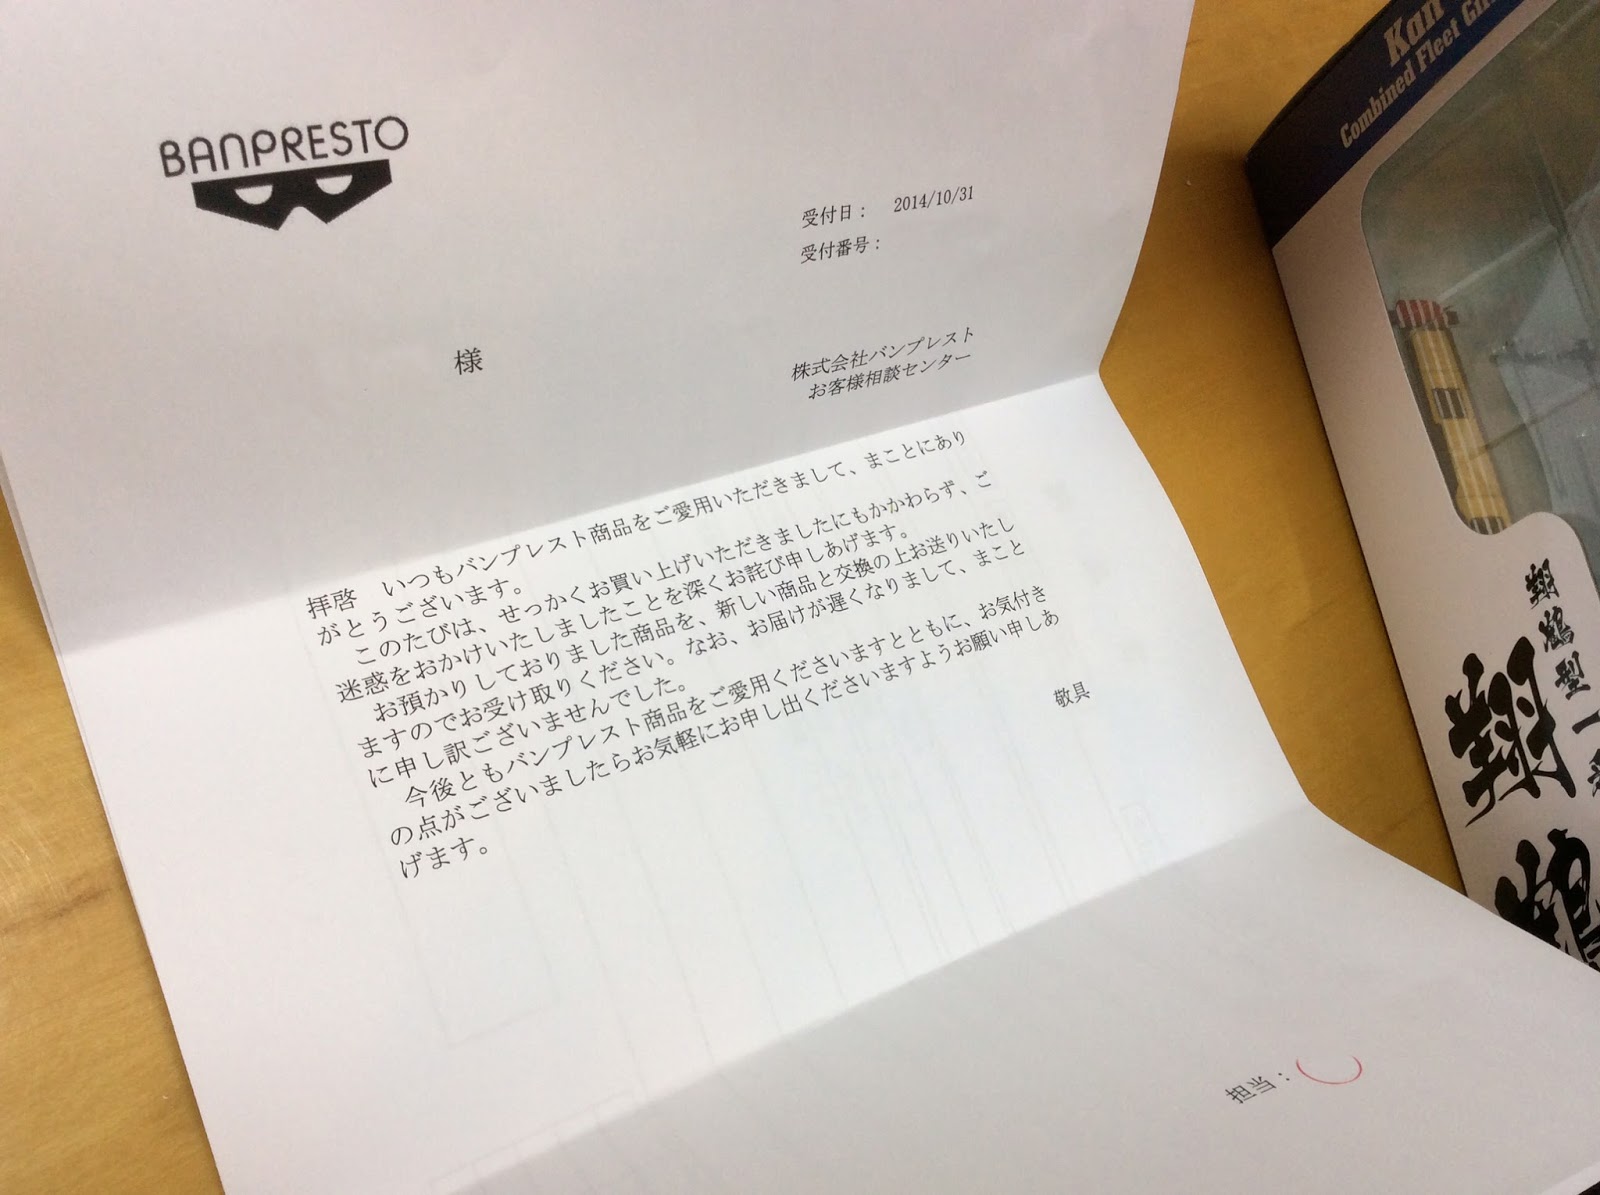 BANPRESTO
受付日： 2014/10/31
受付番号：
様
株式会社バンプレスト
お客様相談センター
拝啓　いつもバンプレスト商品をご愛用いただきまして、まことにあり
がとうございます。
このたびは、せっかくお買い上げいただきましたにもかかわらず、ご
迷惑をおかけいたしましたことを深くお詫び申しあげます。
お預かりしておりました商品を、新しい商品と交換の上お送りいたし
ますのでお受け取りください。なお、お届けが遅くなりまして、まこと
に申し訳ございませんでした。
今後ともバンプレスト商品をご愛用くださいますとともに、お気付き
の点がございましたらお気軽にお申し出くださいますようお願い申しあ
げます。
敬具
担当：
Kan
Combined Fleet Gir
翔鶴型一
翔鶴